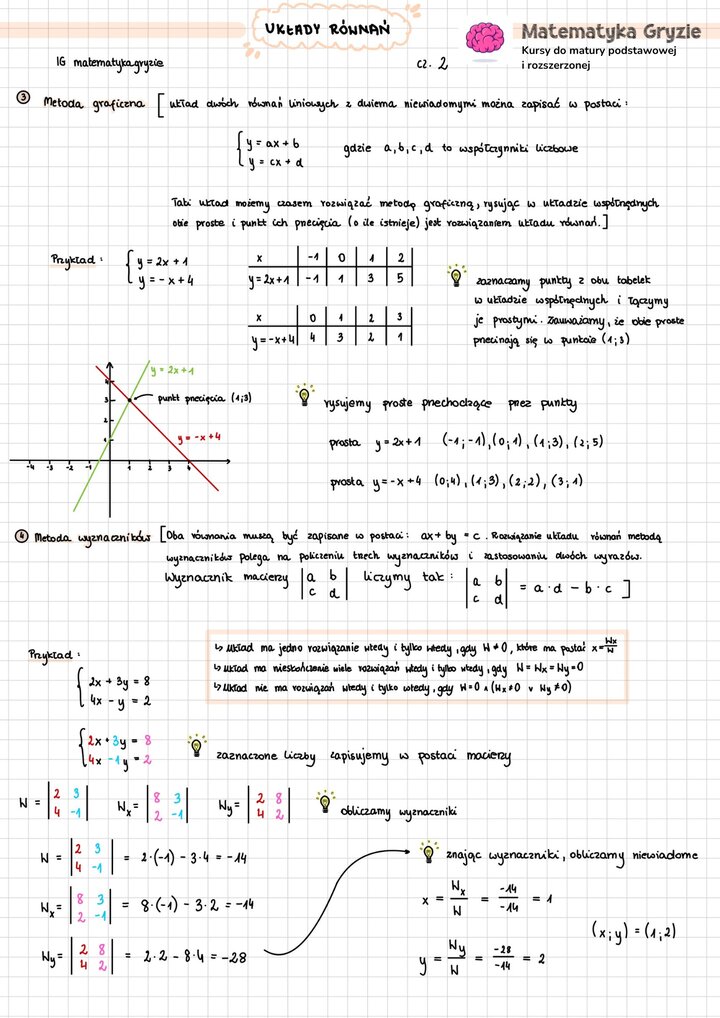 UKŁADY RÓWNAŃ
Matematyka Gryzie
Kursy do matury podstawowej
i rozszerzonej
IG matematyka.gryzie
cz. 2
③ Metoda graficzna [układ dwóch równań liniowych z dwiema niewiadomymi można zapisać w postaci:
y = ax + b
y = cx + d
gdzie a, b, c, d to współczynniki liczbowe
Taki układ możemy czasem rozwiązać metodą graficzną, rysując w układzie współrzędnych
obie proste i punkt ich przecięcia (o ile istnieje) jest rozwiązaniem układu równań.]
Przykład:
y = 2x + 1
y = -x + 4
x | -1 | 0 | 1 | 2
y=2x+1 | -1 | 1 | 3 | 5
x | 0 | 1 | 2 | 3
y=-x+4 | 4 | 3 | 2 | 1
zaznaczamy punkty z obu tabelek
w układzie współrzędnych i łączymy
je prostymi. Zauważamy, że obie proste
przecinają się w punkcie (1;3)
y = 2x+1
punkt przecięcia (1;3)
y = -x+4
4
3
2
1
-4 -3 -2 -1 1 2 3 4
rysujemy proste przechodzące przez punkty
prosta y=2x+1 (-1;-1),(0;1),(1;3),(2;5)
prosta y=-x+4 (0;4),(1;3),(2;2),(3;1)
④ Metoda wyznaczników [Oba równania muszą być zapisane w postaci: ax+by = c. Rozwiązanie układu równań metodą
wyznaczników polega na policzeniu trzech wyznaczników i zastosowaniu dwóch wyrazów.
Wyznacznik macierzy |a b| liczymy tak: |a b| = a·d - b·c ]
|c d| |c d|
Przykład:
2x + 3y = 8
4x - y = 2
↳ układ ma jedno rozwiązanie wtedy i tylko wtedy, gdy W≠0, które ma postać x=Wx/W
↳ układ ma nieskończenie wiele rozwiązań wtedy i tylko wtedy, gdy W=Wx=Wy=0
↳ układ nie ma rozwiązań wtedy i tylko wtedy, gdy W=0 ∧ (Wx≠0 ∨ Wy≠0)
2x + 3y = 8
4x - 1y = 2
zaznaczone liczby zapisujemy w postaci macierzy
W = |2 3| Wx= |8 3| Wy= |2 8|
|4 -1| |2 -1| |4 2|
obliczamy wyznaczniki
W = |2 3| = 2·(-1) - 3·4 = -14
|4 -1|
Wx= |8 3| = 8·(-1) - 3·2 = -14
|2 -1|
Wy= |2 8| = 2·2 - 8·4 = -28
|4 2|
znając wyznaczniki, obliczamy niewiadome
x = Wx/W = -14/-14 = 1
y = Wy/W = -28/-14 = 2
(x;y) = (1;2)